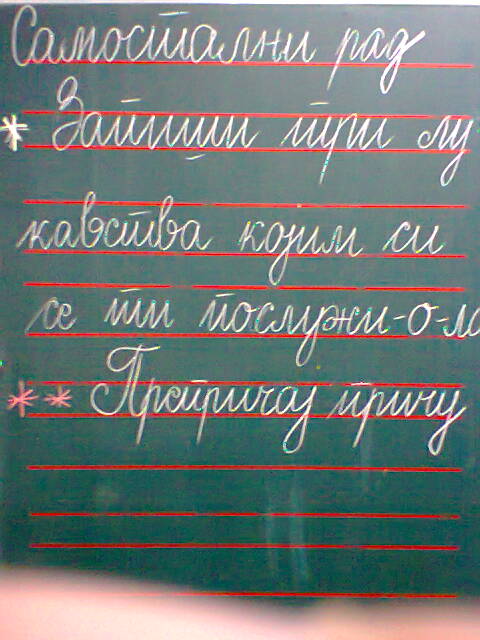 Самостални рад
* Запиши три лу
кавства којим си
се ти послужи-о-ла
** Препричај причу